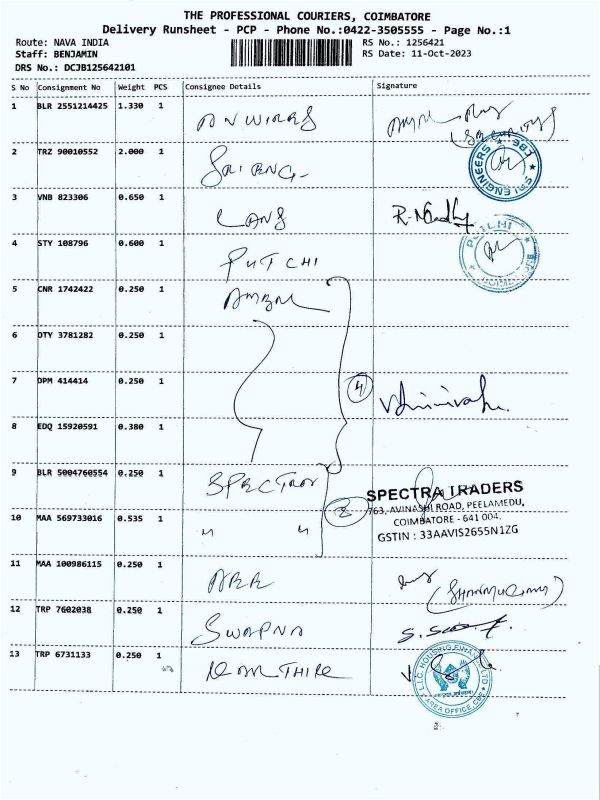 THE PROFESSIONAL COURIERS, COIMBATORE
Delivery Runsheet - PCP - Phone No.:0422-3505555 - Page No.:1
Route: NAVA INDIA RS No.: 1256421
Staff: BENJAMIN RS Date: 11-Oct-2023
DRS No.: DCJB125642101
S No Consignment No Weight PCS Consignee Details Signature
1 BLR 2551214425 1.330 1
2 TRZ 90010552 2.000 1
SRI ENGINEERS CBE
3 VNB 823306 0.650 1
4 STY 108796 0.600 1 PUTCHI
5 CNR 1742422 0.250 1
6 DTY 3781282 0.250 1
7 DPM 414414 0.250 1 4
8 EDQ 15920591 0.380 1
9 BLR 5004760554 0.250 1 2
SPECTRA TRADERS
763, AVINASHI ROAD, PEELAMEDU,
COIMBATORE - 641 004.
GSTIN : 33AAVIS2655N1ZG
10 MAA 569733016 0.535 1 " "
11 MAA 100986115 0.250 1
12 TRP 7602038 0.250 1 SWAPNA
13 TRP 6731133 0.250 1
AREA OFFICE, CBE